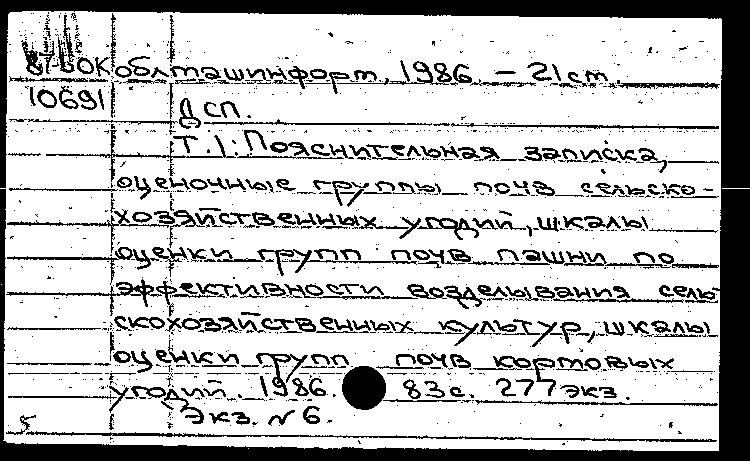 87-50К облташинформ, 1986. – 21 ст.
10691 ДСП.
Т.1: Пояснительная записка,
оценочные группы почв сельско-
хозяйственных угодий, шкалы
оценки групп почв пашни по
эффективности возделывания сель
скохозяйственных культур, шкалы
оценки групп почв кормовых
угодий. 1986. 83 с. 277 экз.
Экз. № 6.